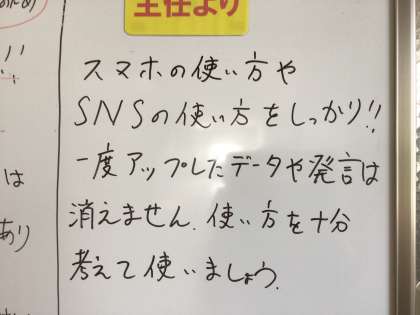 主任より
スマホの使い方や
SNSの使い方をしっかり!!
一度アップしたデータや発言は
消えません。使い方を十分
考えて使いましょう。
は
あり